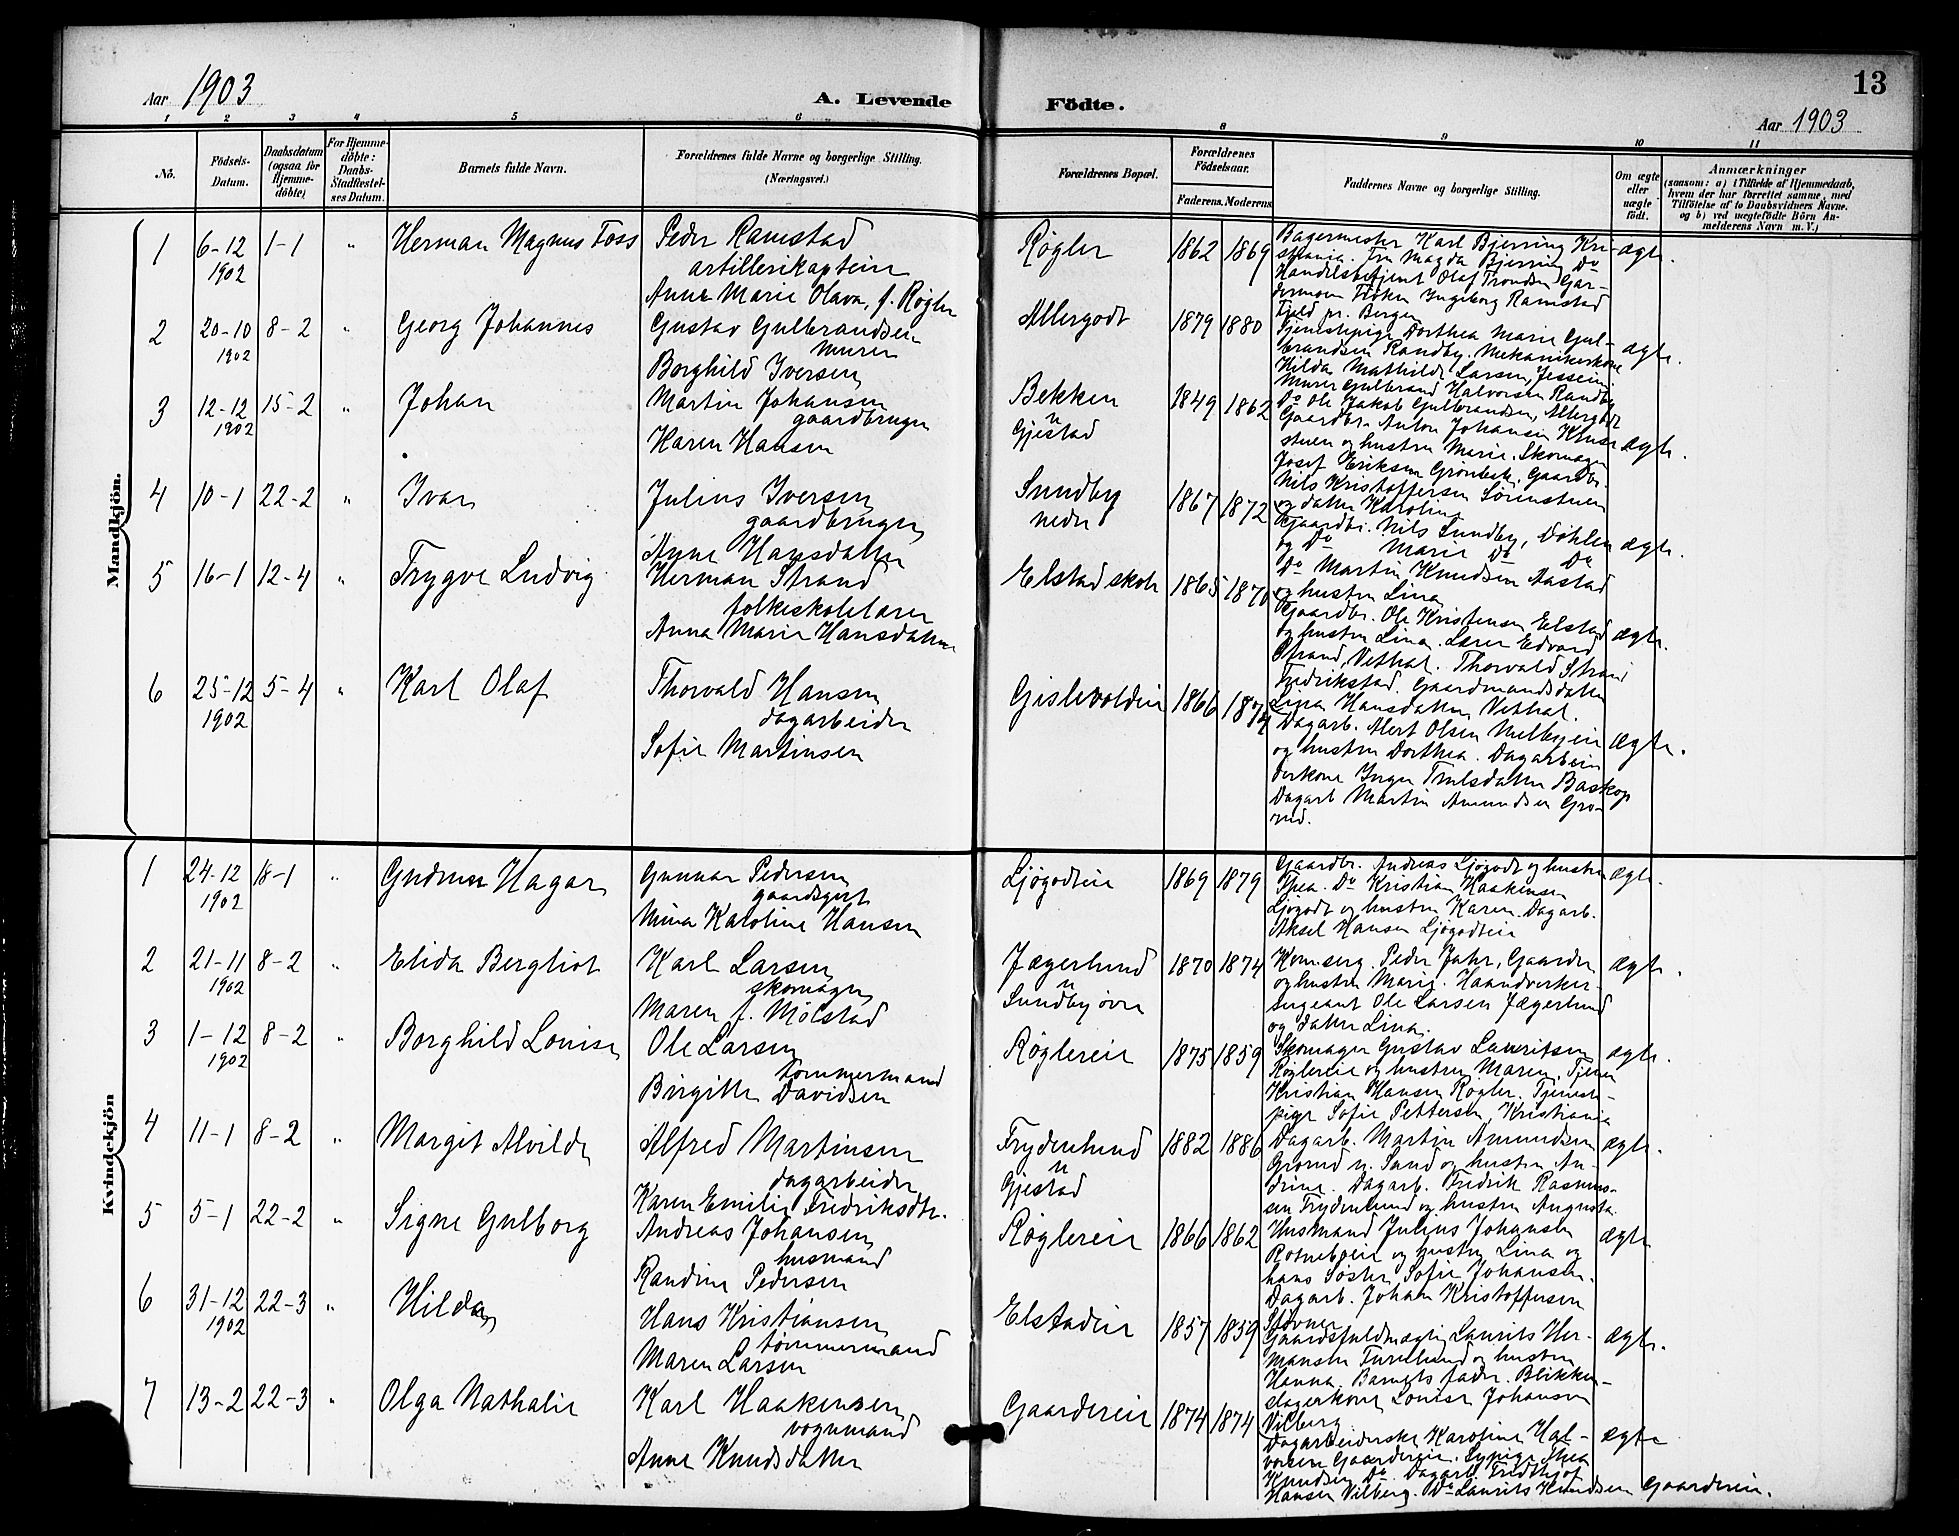 13
Aar 1903
A. Levende Födte.
Aar 1903
1 2 3 4 5 6 8 9 10 11
No.
Födsels-Datum.
Daabsdatum (ogsaa for Hjemme-döbte)
For Hjemme-döbte: Daabs-Stadfæstel-ses Datum.
Barnets fulde Navn.
Forældrenes fulde Navne og borgerlige Stilling.
(Næringsvei.)
Forældrenes Bopæl.
Forældrenes Födselsaar.
Faderens. Moderens.
Faddernes Navne og borgerlige Stilling.
Om ægte eller uægte födt.
Anmærkninger
(saasom: a) i Tilfælde af Hjemmedaab,
hvem der har forrettet samme, med
Tilföielse af to Daabsvidners Navne.
og b) ved uægtefödte Börn An-
melderens Navn m. V.)
Mandkjön.
1 6-12 1902 1-1 " Herman Magnus Foss
Peder Ramstad
artillerikaptein
Anna Marie Olava, f. Røgler
Røgler 1862 1869
Bagermester Karl Bjerring Kri-
stiania. Fru Magda Bjerring Do
Handelsbetjent Olaf Trondsen Gar-
dermoen Frøken Ingeborg Ramstad
Fjeld pr. Bergen
ægte.
2 20-10 1902 8-2 " Georg Johannes
Gustav Gulbrandsen
murer
Borghild Iversen
Allergodt 1879 1880
Tjenestepige Dorthea Marie Gul-
brandsen Randby. Mekanikerkone
Hilda Mathilde Larsen, Jesseim
Murer Gulbrand Halvorsen Randby
Do Ole Jakob Gulbrandsen, Allergodt
ægte.
3 12-12 1902 15-2 " Johan
Martin Johansen
gaardbruger
Karen Hansen
Bekken
u
Gjestad
1849 1862
Gaardbr. Anton Johansen Kruse
stuen og hustru Marie. Skomager
Josef Eriksen Grønbek, Gaardbr.
Nils Kristoffersen Sørenstuen
og datter Karoline
ægte.
4 10-1 22-2 " Ivar
Julius Iversen
gaardbruger
Anne Hansdatter
Sundby
nedre
1867 1872
Gaardbr. Nils Sundby, Dahlen
og Do Marie Do Do
Do Martin Knudsen Aastad
og hustru Lina
ægte.
5 16-1 12-4 " Trygve Ludvig
Herman Strand
folkeskolelærer
Anna Marie Hansdatter
Elstad skole 1865 1870
Gaardbr. Ole Kristensen Elstad
og hustru Lina. Lærer Edvard
Strand, Vethal. Thorvald Strand
Fredrikstad. Gaardmandsdatter
Lina Hansdatter Vethal.
ægte.
6 25-12 1902 5-4 " Karl Olaf
Thorvald Hansen
dagarbeider
Sofie Martinsen
Gislevoldeie 1866 1874
Dagarb. Mert Olsen Melbyeie
og hustru Dorthea. Dagarbei-
derkone Inger Trulsdatter Baskop
Dagarb Martin Amundsen Gro-
ond.
ægte.
Kvindekjön
1 24-12 1902 18-1 " Gudrun Hagar
Gunnar Pedersen
gaardsgut
Mina Karoline Hansen
Ljøgodteie 1869 1879
Gaardbr. Andreas Ljøgodt og hustru
Thea. Do Kristian Haakensen
Ljøgodt og hustru Karen. Dagarb.
Aksel Hansen Ljøgodteie
ægte.
2 21-11 1902 8-2 " Elida Bergliot
Karl Larsen
skomager
Maren f. Mølstad
Jægerlund
u
Sundby øvre
1870 1874
Korn.serg. Peder Jahr, Gaarder
og hustru Marie. Haandverker-
sergeant Ole Larsen Jægerlund
og datter Lina.
ægte.
3 1-12 1902 8-2 " Borghild Louise
Ole Larsen
tømmermand
Birgitte Davidsen
Røglereie 1875 1859
Skomager Gustav Lauritsen
Røglereie og hustru Maren, Tjener
Kristian Hansen Røgler. Tjeneste-
pige Sofie Pettersen, Kristiania
ægte.
4 11-1 8-2 " Margit Alvilde
Alfred Martinsen
dagarbeider
Karen Emilie Fredriksdtr.
Frydenlund
u
Gjestad
1882 1886
Dagarb. Martin Amundsen
Groond u. Sand og hustru An-
drine. Dagarb. Fredrik Rasmus-
sen Frydenlund og hustru Augusta.
ægte.
5 5-1 22-2 " Signe Gulborg
Andreas Johansen
husmand
Randine Pedersen
Røglereie 1866 1862
Husmand Julius Johansen
Rotneboeie og hustru Lina og
hans søster, Sofie Johansen.
Dagarb. Johan Kristoffersen
Støvner
ægte
6 31-12 1902 22-3 " Hilda
Hans Kristiansen
tømmermand
Maren Larsen
Elstadeie 1857 1859
Gaardsfuldmægtig Laurits Her-
mansen Furulund og hustru
Hanna. Barnets fader. Blikken-
slagerkone Louise Johansen
Vilberg
ægte.
7 13-2 22-3 " Olga Nathalie
Karl Haakensen
vognmand
Anne Knudsdatter
Gaardereie 1874 1874
Dagarbeiderske Karoline Hal-
vorsen Gaardereie. Sypige Thea
Knudsen Do. Dagarb. Fridtjof
Hansen Vilberg. Do Laurits Knudsen Gaardereie.
ægte